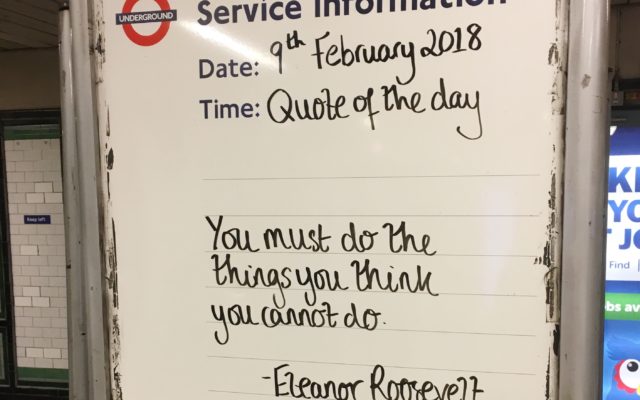 UNDERGROUND
Service Information
Date: 9th February 2018
Time: Quote of the day
You must do the
things you think
you cannot do.
-Eleanor Roosevelt
Keep left
Find